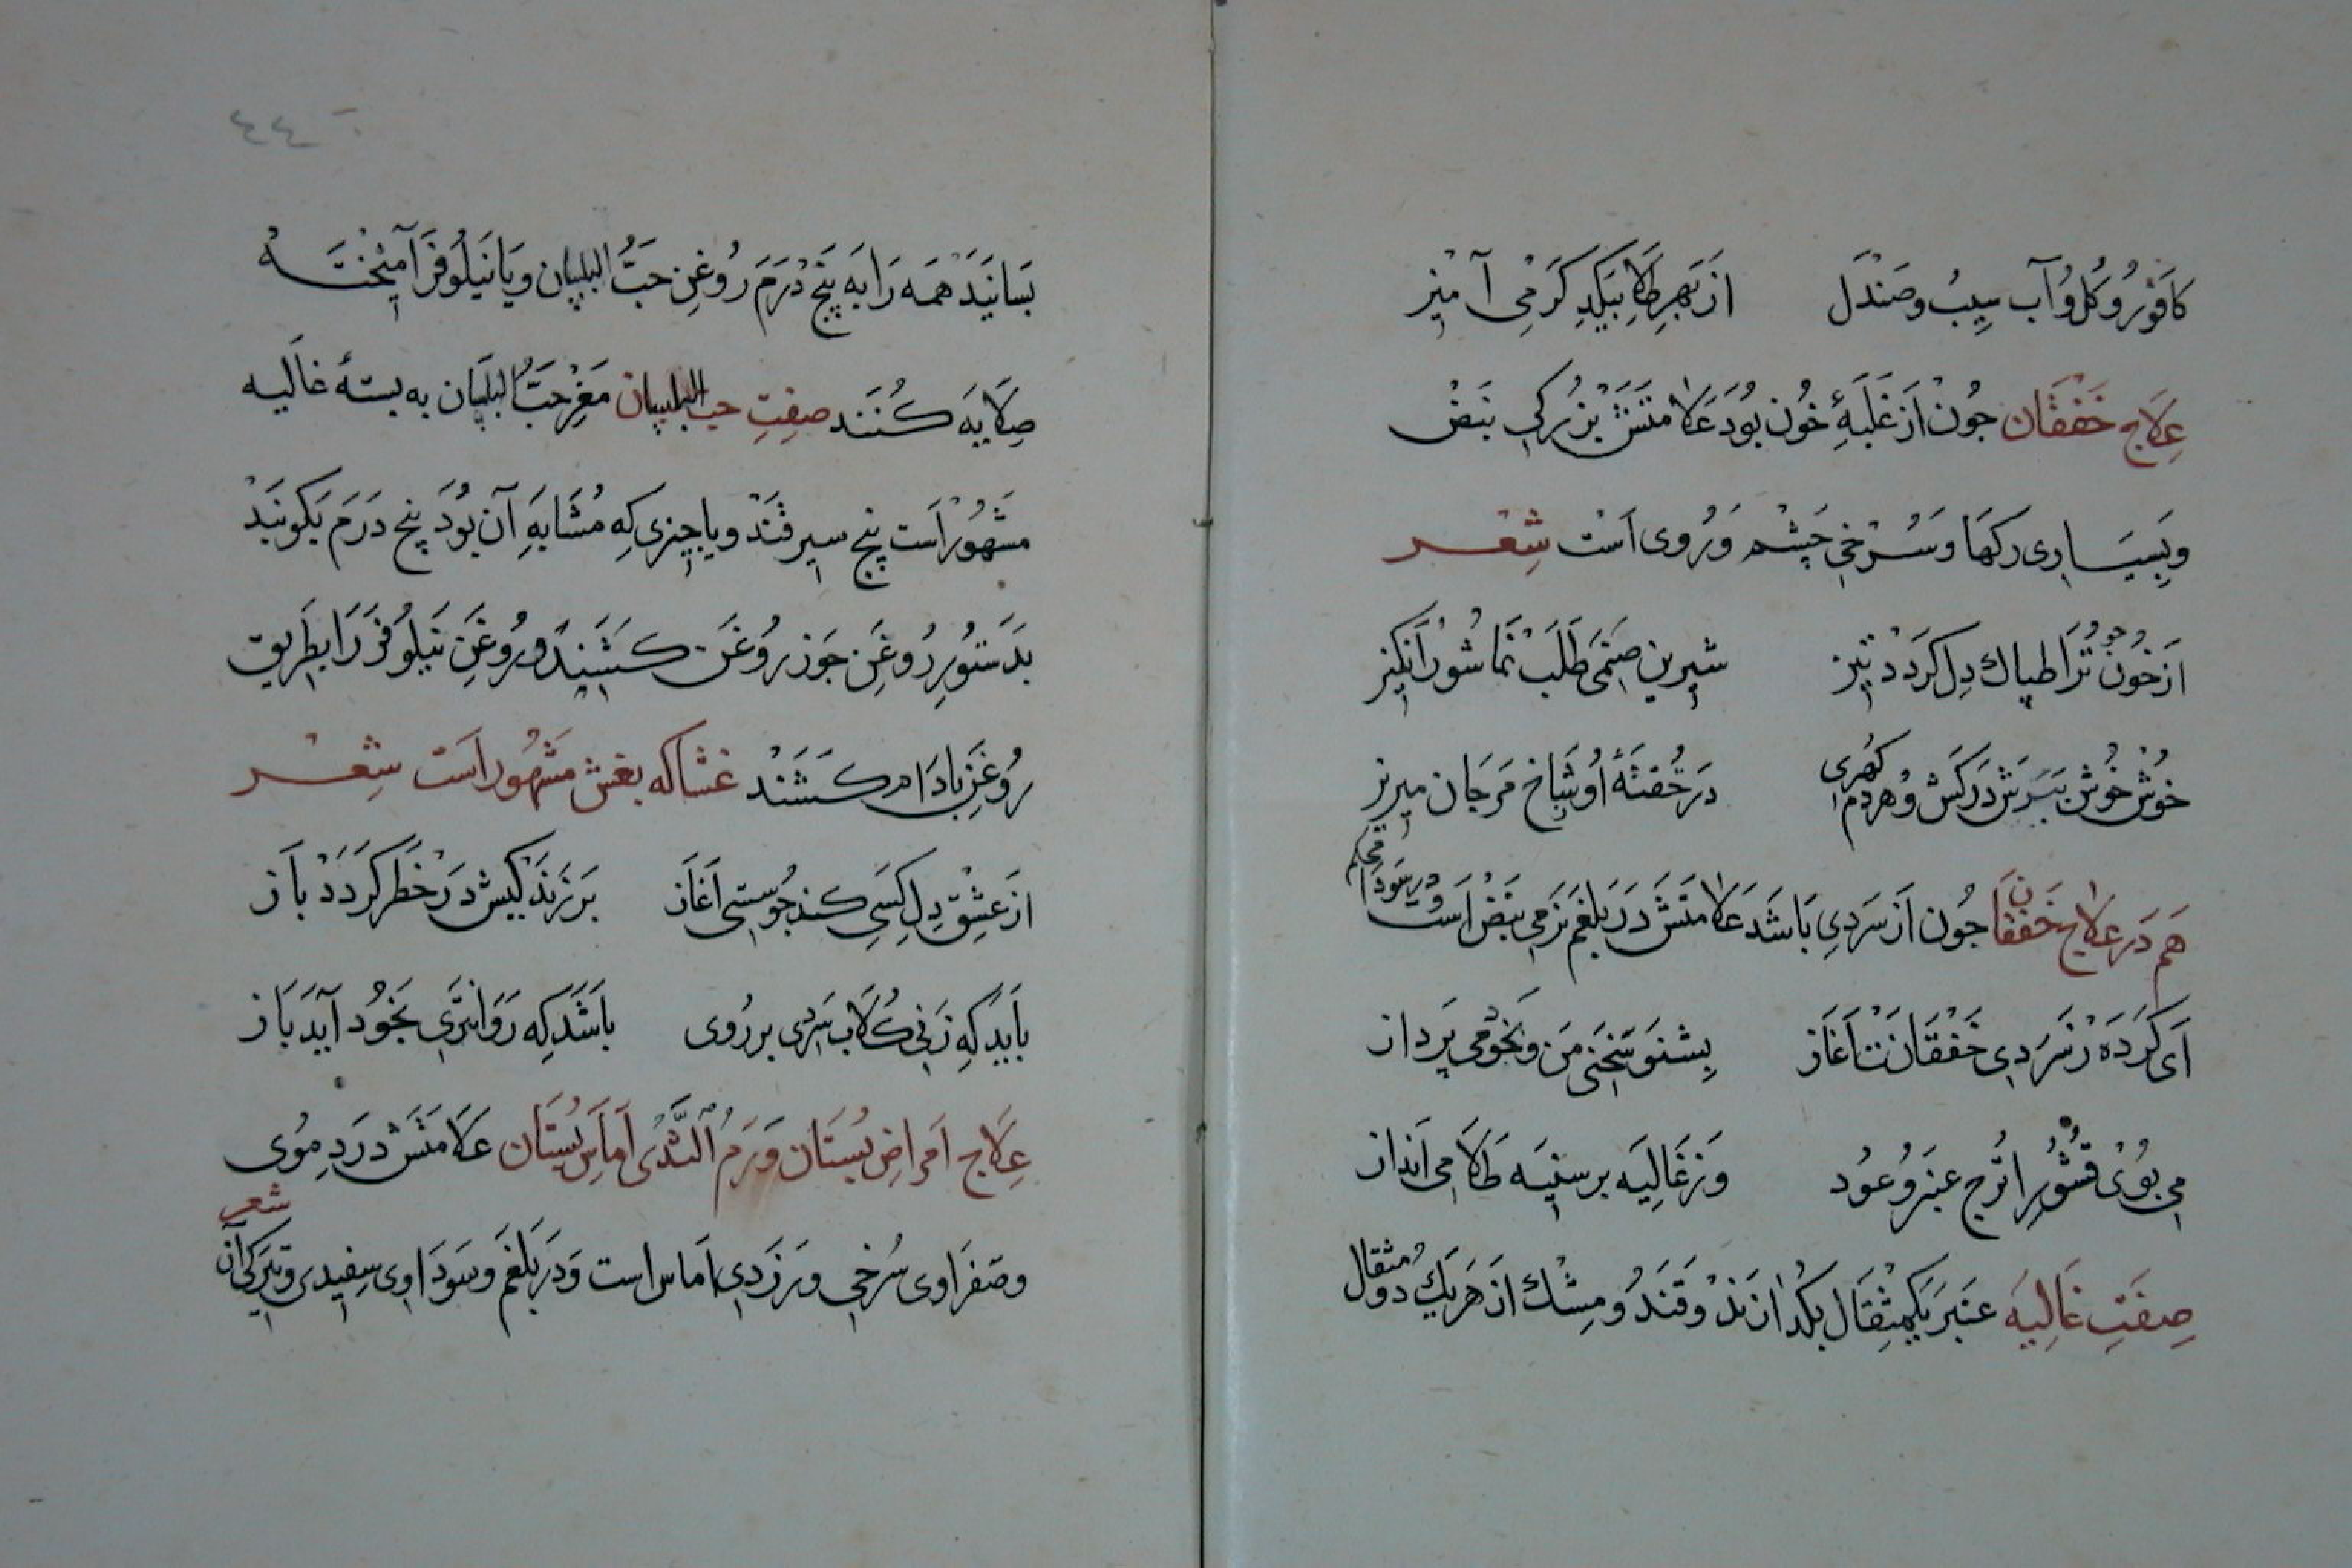 کافور و کل و آب سیب و صندل از بهر طلا بیکدکر می آمیز
علاج خفقان جون از غلبهٔ خون بود علامتش بزرکی نبض
و بسیاری رکها و سرخی چشم و روی است شعر
از خون جو ترا طپاك دل کردد تیز شیرین صنمی طلب نما شورانکیز
خوش خوش ببرش درکش و هردم کهری در حقتهٔ او شاخ مرجان میریز
هم در علاج خفقان جون از سردی باشد علامتش در بلغم نرمی نبض است و در سودا محکم
ای کرده ز سردی خفقانت آغاز بشنو سخنی من و نخو می پرداز
می بوی قشور اترج عنبر و عود وز غالیه بر سینه طلا می انداز
صفت غالیه عنبر یکمثقال بکدازند و قند و مشك از هریك دو مثقال
٤٤
بسانید همه را به پنج درم روغن حب البلیبان و یا نیلوفر آمیخته
صلایه کنند صفت حب البلیبان مغز حب البلبان به بستهٔ غالیه
مشهور است پنج سیر قند و یا چیزی که مشابه آن بود پنج درم بکونید
بدستور روغن جوز روغن کشند و روغن نیلوفر را بطریق
روغن بادام کشند غشا که بغش مشهور است شعر
از عشق دل کسی کند جو سستی آغاز برزند کیش در خطر کردد باز
باید که زنی کلاب سردی بر روی باشد که روانتری بخود آید باز
علاج امراض بستان ورم الثدی اماس بستان علامتش در دموی
شعر
و صفراوی سرخی و زردی اماس است و در بلغم و سوداوی سفیدی و تیرکی آن